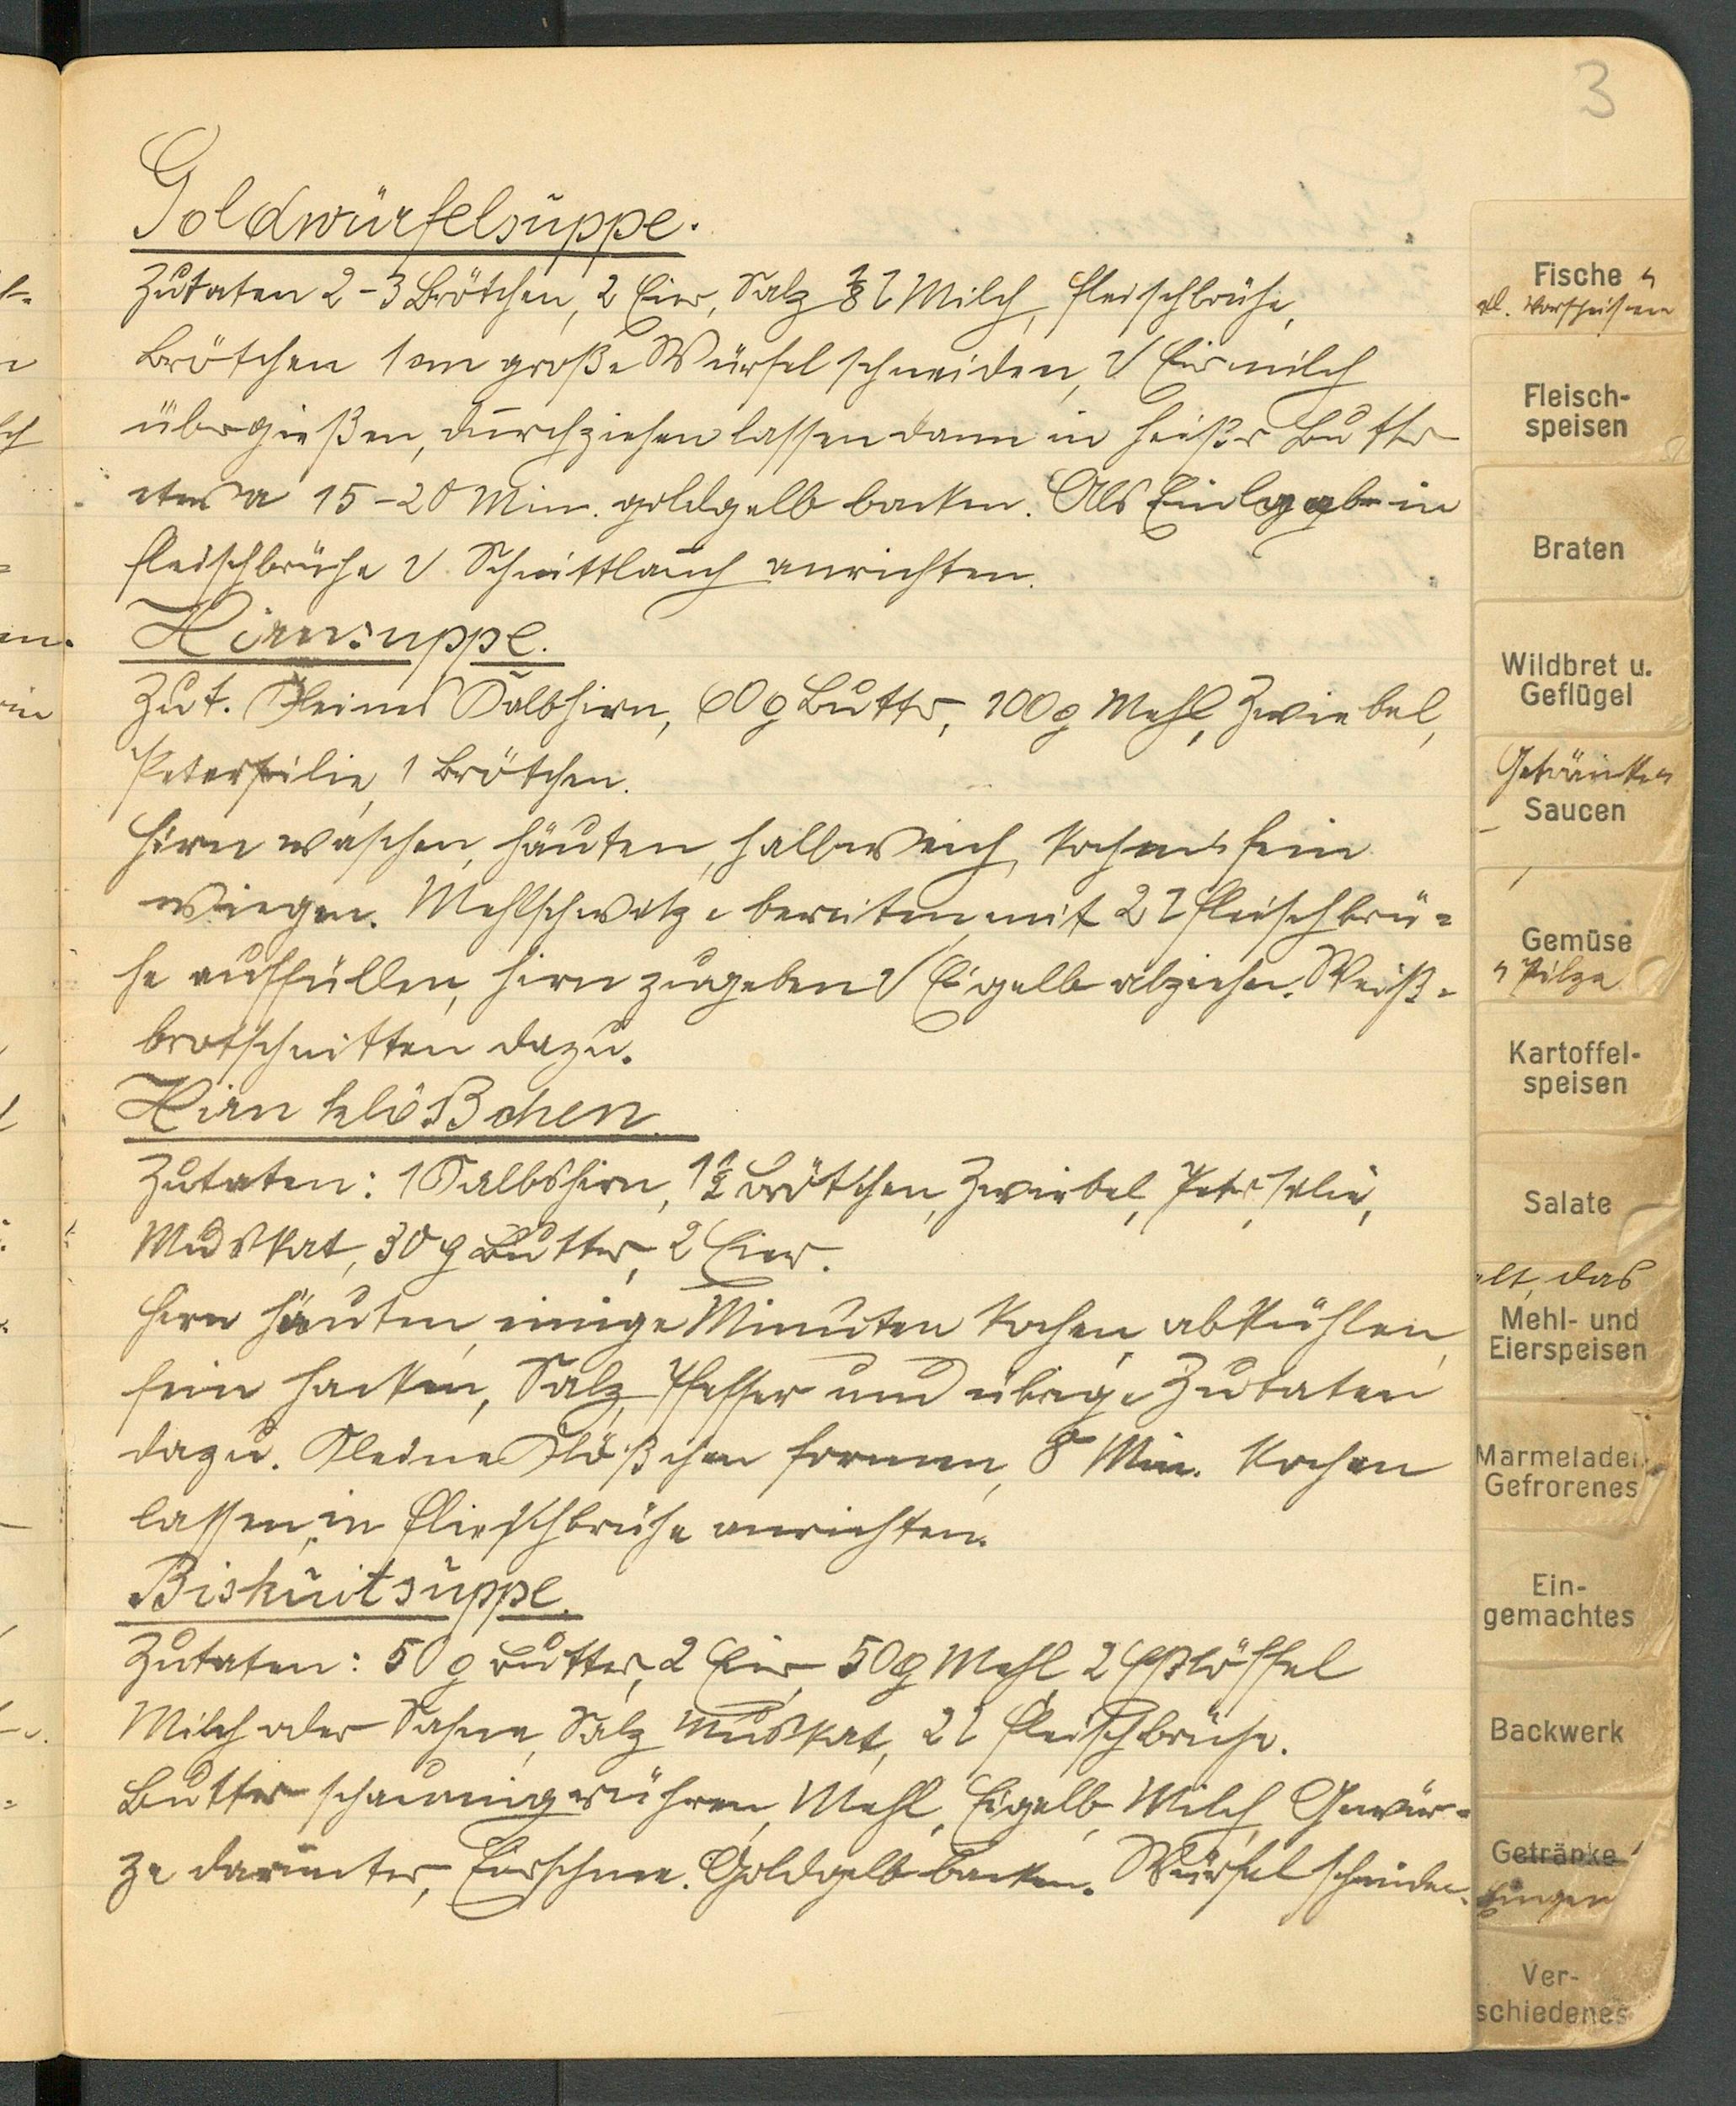 3
Goldwürfelsuppe.
Zutaten 2-3 Brötchen, 2 Eier, Salz ⅜ l Milch, Fleischbrühe,
Brötchen 1 cm große Würfel schneiden, Eiermilch
übergießen, durchziehen lassen dann in heißer Butter
etwa 15-20 Min. goldgelb backen. Als in
Fleischbrühe Schnittlauch anrichten.
Hirnsuppe.
Zut. Kleines Kalbhirn, 60 g Butter, 100 g Mehl, Zwiebel,
Petersilie, 1 Brötchen.
Hirn waschen, häuten, halbweich kochen fein
wiegen. Mehlschwitze bereiten, mit 2 l Fleischbrü=
he auffüllen, Hirn zugeben Eigelb abziehen. Weiß=
brotschnitten dazu.
Hirnklößchen.
Zutaten: 1 Kalbshirn, 1½ Brötchen, Zwiebel, Petersilie,
Muskat, 30 g Butter, 2 Eier.
Hirn häuten, einige Minuten kochen, abkühlen,
fein hacken, Salz, Pfeffer und übrige Zutaten
dazu. Kleine Klößchen formen, 8 Min. kochen
lassen, in Fleischbrühe anrichten.
Biskuitsuppe.
Zutaten: 50 g Butter, 2 Eier, 50 g Mehl, 2 Eßlöffel
Milch oder Sahne, Salz Muskat, 2 l Fleischbrühe.
Butter schaumig rühren, Mehl, Eigelb, Milch, Gewür=
ze darunter, Eierschnee. Goldgelb backen. Würfel schneiden.
Fische
kl. Vorspeisen
Fleisch-
speisen
Braten
Wildbret u.
Geflügel
Getränke
Saucen
Gemüse
Pilze
Kartoffel-
speisen
Salate
das
Mehl- und
Eierspeisen
Marmeladen
Gefrorenes
Ein-
gemachtes
Backwerk
Getränke
Ver-
schiedenes